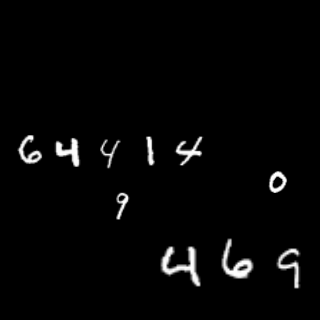 64414
0
9
469